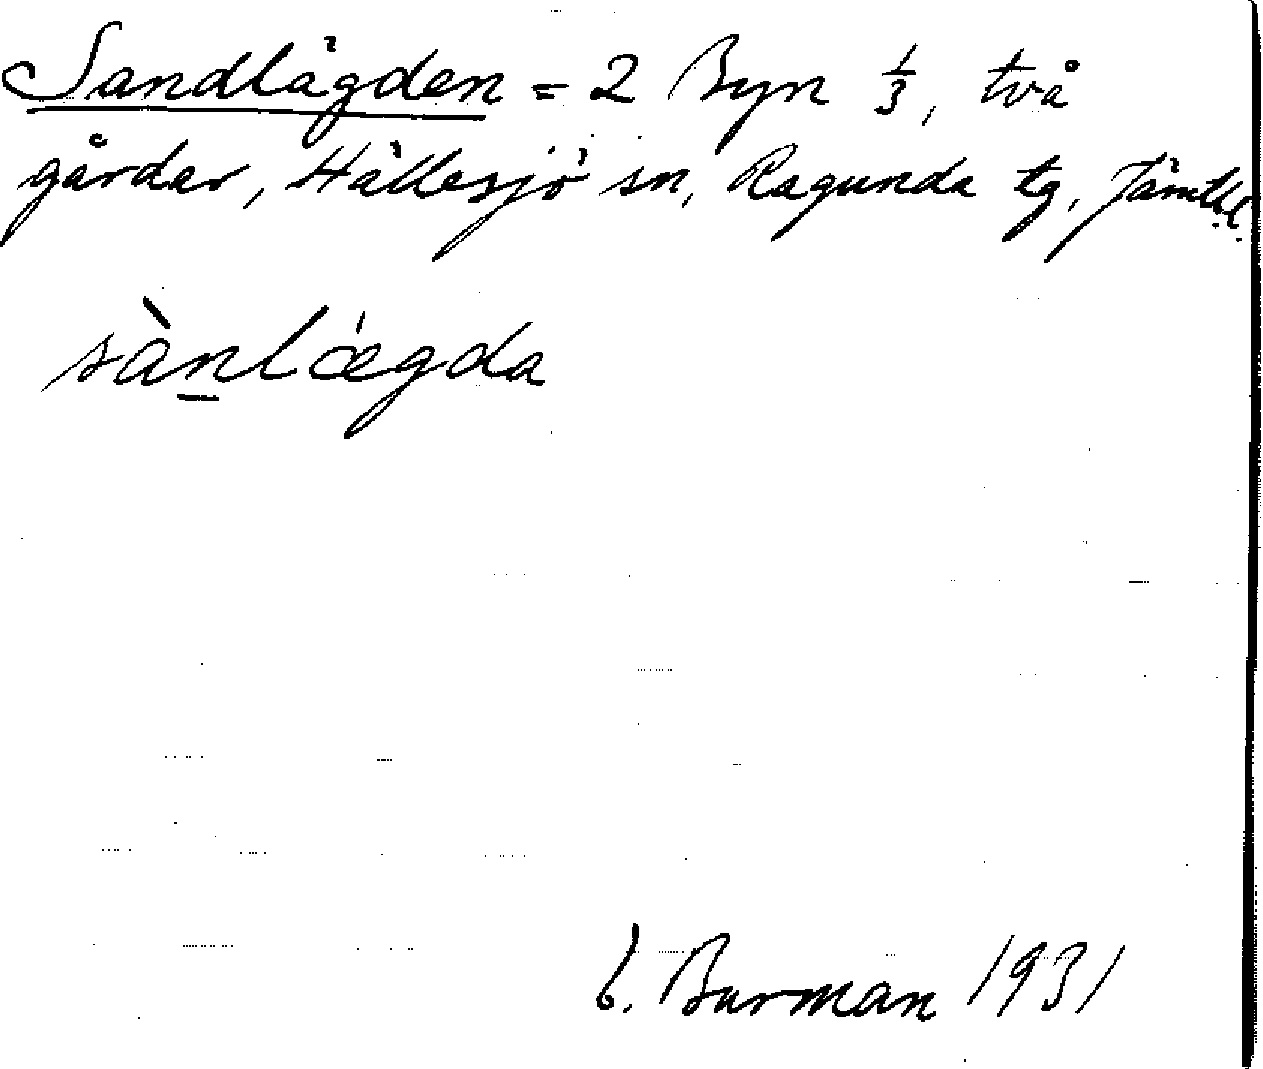 Sandlägden = 2 Byn 1/3, två
gårdar, Hällesjö sn, Ragunda tg, Jämtl.
sànlǽgda
Burman 1931